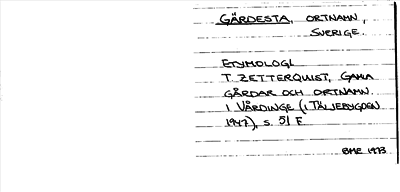 GÄRDESTA, ORTNAMN,
SVERIGE.
ETYMOLOGI
T. ZETTERQUIST, GAMLA
GÅRDAR OCH ORTNAMN
I VÅRDINGE (I TÄLJEBYGDEN
1947), S. 51 F
BME 1973